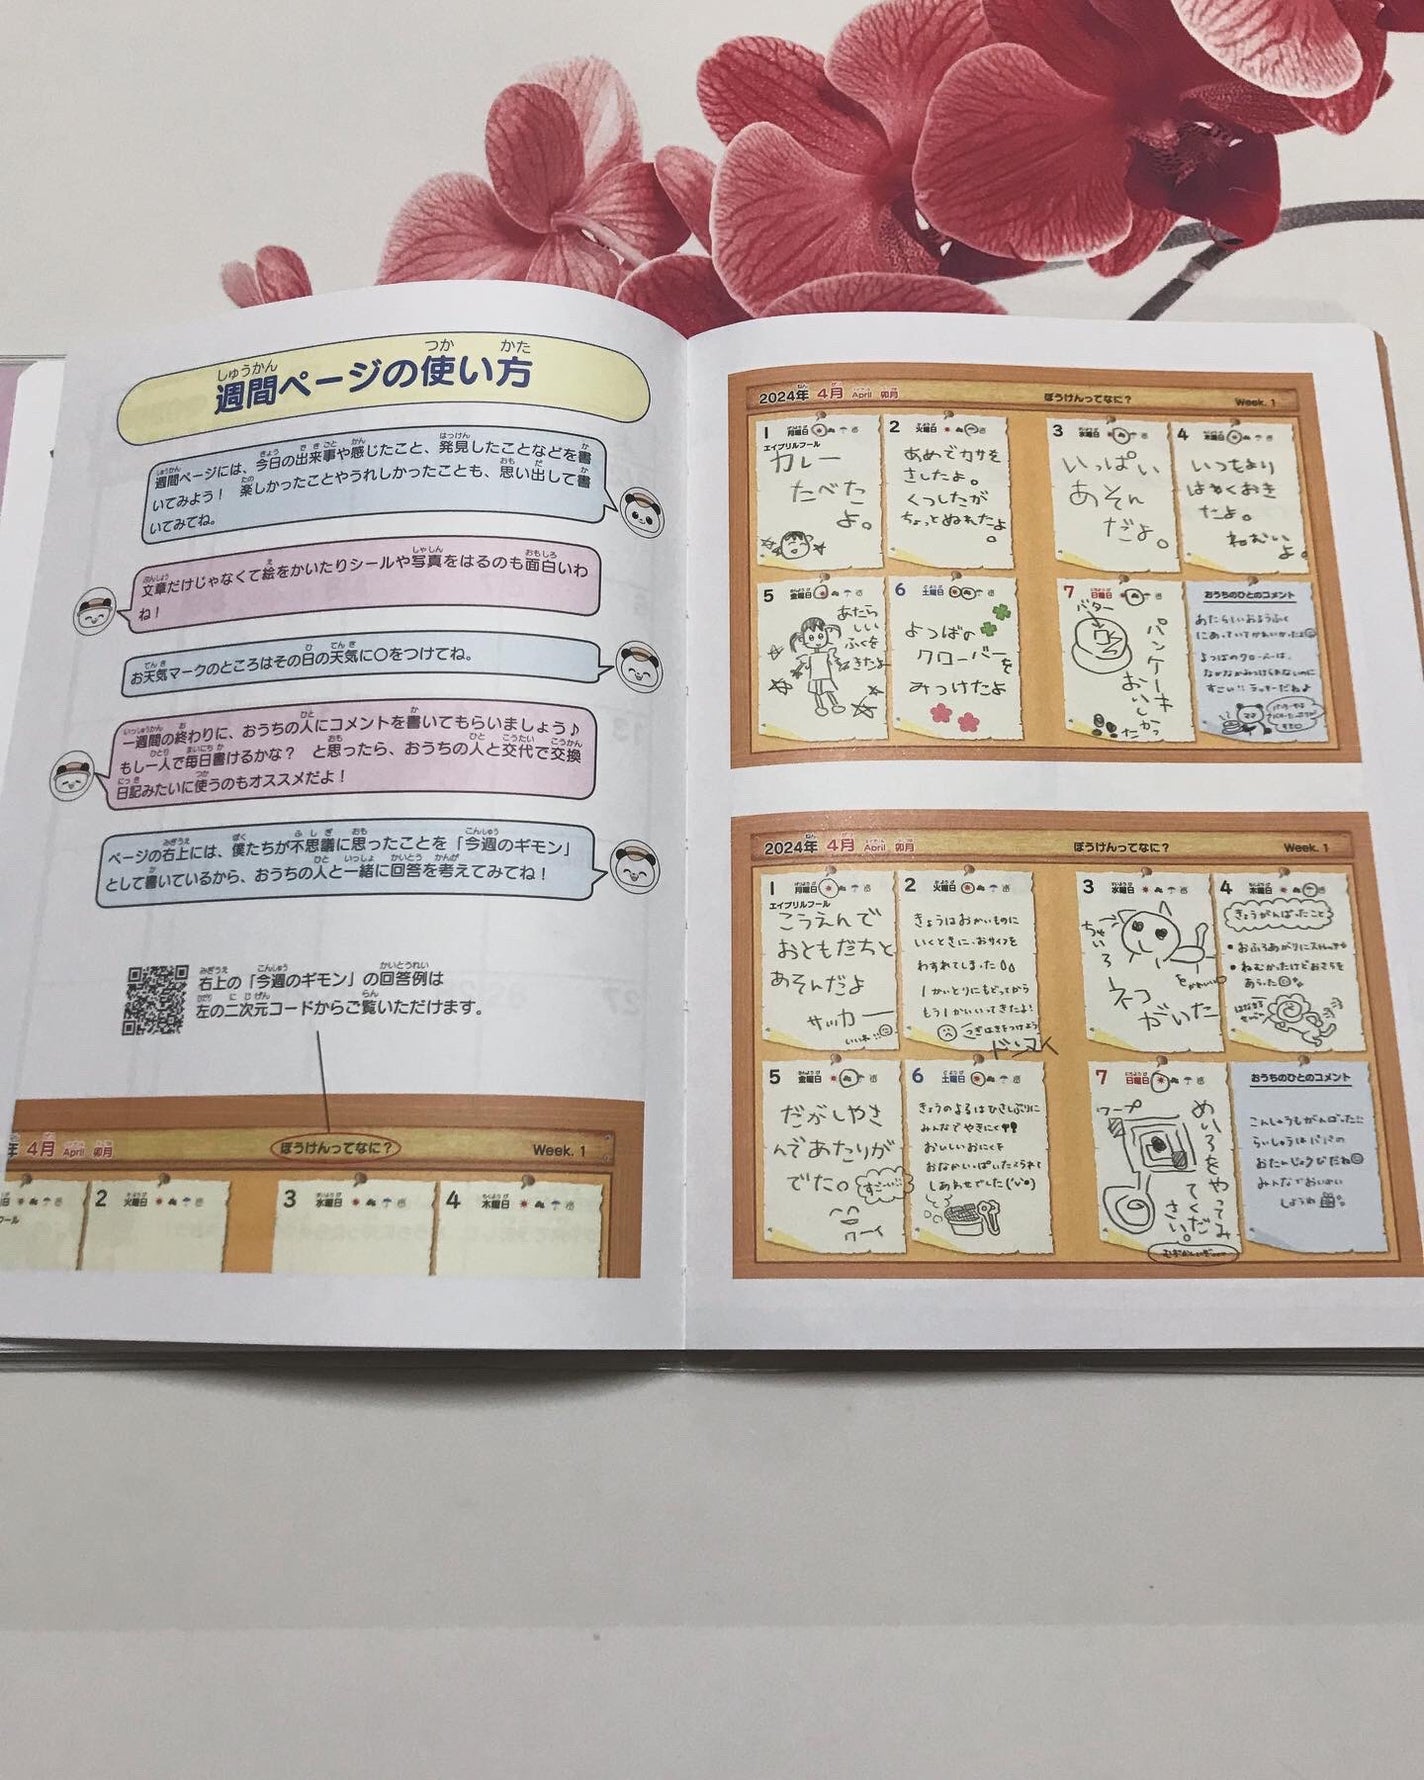 週間ページの使い方
週間ページには、今日の出来事や感じたこと、発見したことなどを書
いてみよう！ 楽しかったことやうれしかったことも、思い出して書
いてみてね。
文章だけじゃなくて絵をかいたりシールや写真をはるのも面白いわ
ね！
お天気マークのところはその日の天気に○をつけてね。
一週間の終わりに、おうちの人にコメントを書いてもらいましょう♪
もし一人で毎日書けるかな？ と思ったら、おうちの人と交代で交換
日記みたいに使うのもオススメだよ！
ページの右上には、僕たちが不思議に思ったことを「今週のギモン」
として書いているから、おうちの人と一緒に回答を考えてみてね！
右上の「今週のギモン」の回答例は
左の二次元コードからご覧いただけます。
年 4月 April 卯月 ぼうけんってなに？ Week. 1
2 火曜日
3 水曜日
4 木曜日
2024年 4月 April 卯月 ぼうけんってなに？ Week. 1
1 月曜日
エイプリルフール
カレー
たべた
よ。
2 火曜日
あめでカサを
さしたよ。
くつしたが
ちょっとぬれたよ
。
3 水曜日
いっぱい
あそん
だよ。
4 木曜日
いつもより
はやくおき
たよ。
ねむい
よ。
5 金曜日
あたら
しい
ふくを
きたよ
6 土曜日
よつばの
クローバーを
みつけたよ
7 日曜日
バター
パンケーキ
おいしかっ
た
おうちのひとのコメント
あたらしいおようふく
にあっていてかわいかったよ
よつばのクローバーは、
なかなかみつけられないのに
すごい!! ラッキーだねよ
2024年 4月 April 卯月 ぼうけんってなに？ Week. 1
1 月曜日
エイプリルフール
こうえんで
おともだちと
あそんだよ
サッカー
いいね!!
2 火曜日
きょうはおかいものに
いくときに、おサイフを
わすれてしまった
1かいとりにもどってから
もう1かいいってきたよ!
つぎはきをつけよう
ドンマイ
3 水曜日
ちゃいろ
ネコ
がいた
4 木曜日
きょうがんばったこと
• おふろあがりにストレッチ
• ねむかったけどおさらを
あらった
5 金曜日
だがしやさ
んであたりが
でた。
すごーい
ワーイ
6 土曜日
きょうのよるはひさしぶりに
みんなでやきにく
おいしいおにくを
おなかいっぱいたべられて
しあわせでした
7 日曜日
ワープ
めいろをやってみ
てくだ
さい。
むずかしいぞ
おうちのひとのコメント
こんしゅうもがんばったね
らいしゅうはパパの
おたんじょうびだね
みんなでおいわい
しようね